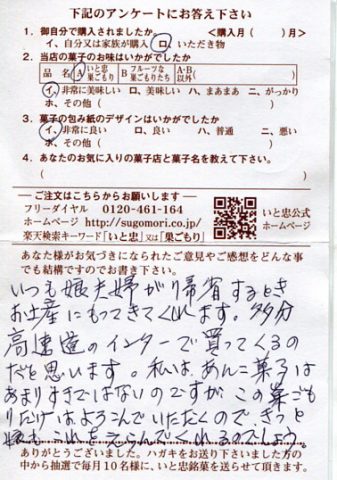 下記のアンケートにお答え下さい
1. 御自分で購入されましたか。 <購入月( )月>
イ、自分又は家族が購入 ロ、いただき物
2. 当店の菓子のお味はいかがでしたか
品 名 A いと忠巣ごもり B フルーツな巣ごもりたち A・B以外( )
イ、非常に美味しい ロ、美味しい ハ、まあまあ ニ、がっかり
ホ、その他( )
3. 菓子の包み紙のデザインはいかがでしたか
イ、非常に良い ロ、良い ハ、普通 ニ、悪い
ホ、その他( )
4. あなたのお気に入りの菓子店と菓子名を教えて下さい。
( )
ご注文はこちらからお願いします
フリーダイヤル 0120-461-164
ホームページ http://sugomori.co.jp/
楽天検索キーワード「いと忠」又は「巣ごもり」
いと忠公式
ホームページ
あなた様がお気づきになられたご意見やご感想をどんな事
でも結構ですのでお書き下さい。
いつも娘夫婦が帰省するとき
お土産にもってきてくれます。多分
高速道のインターで買ってくるの
だと思います。私は、あんこ菓子は
あまりすきではないのですが、この巣ごも
りだけはよろこんでいただくので、きっと
娘も これをえらんでくれるのでしょう。
ありがとうございました。ハガキをお送り下さいました方の
中から抽選で毎月10名様に、いと忠銘菓を送らせて頂きます。